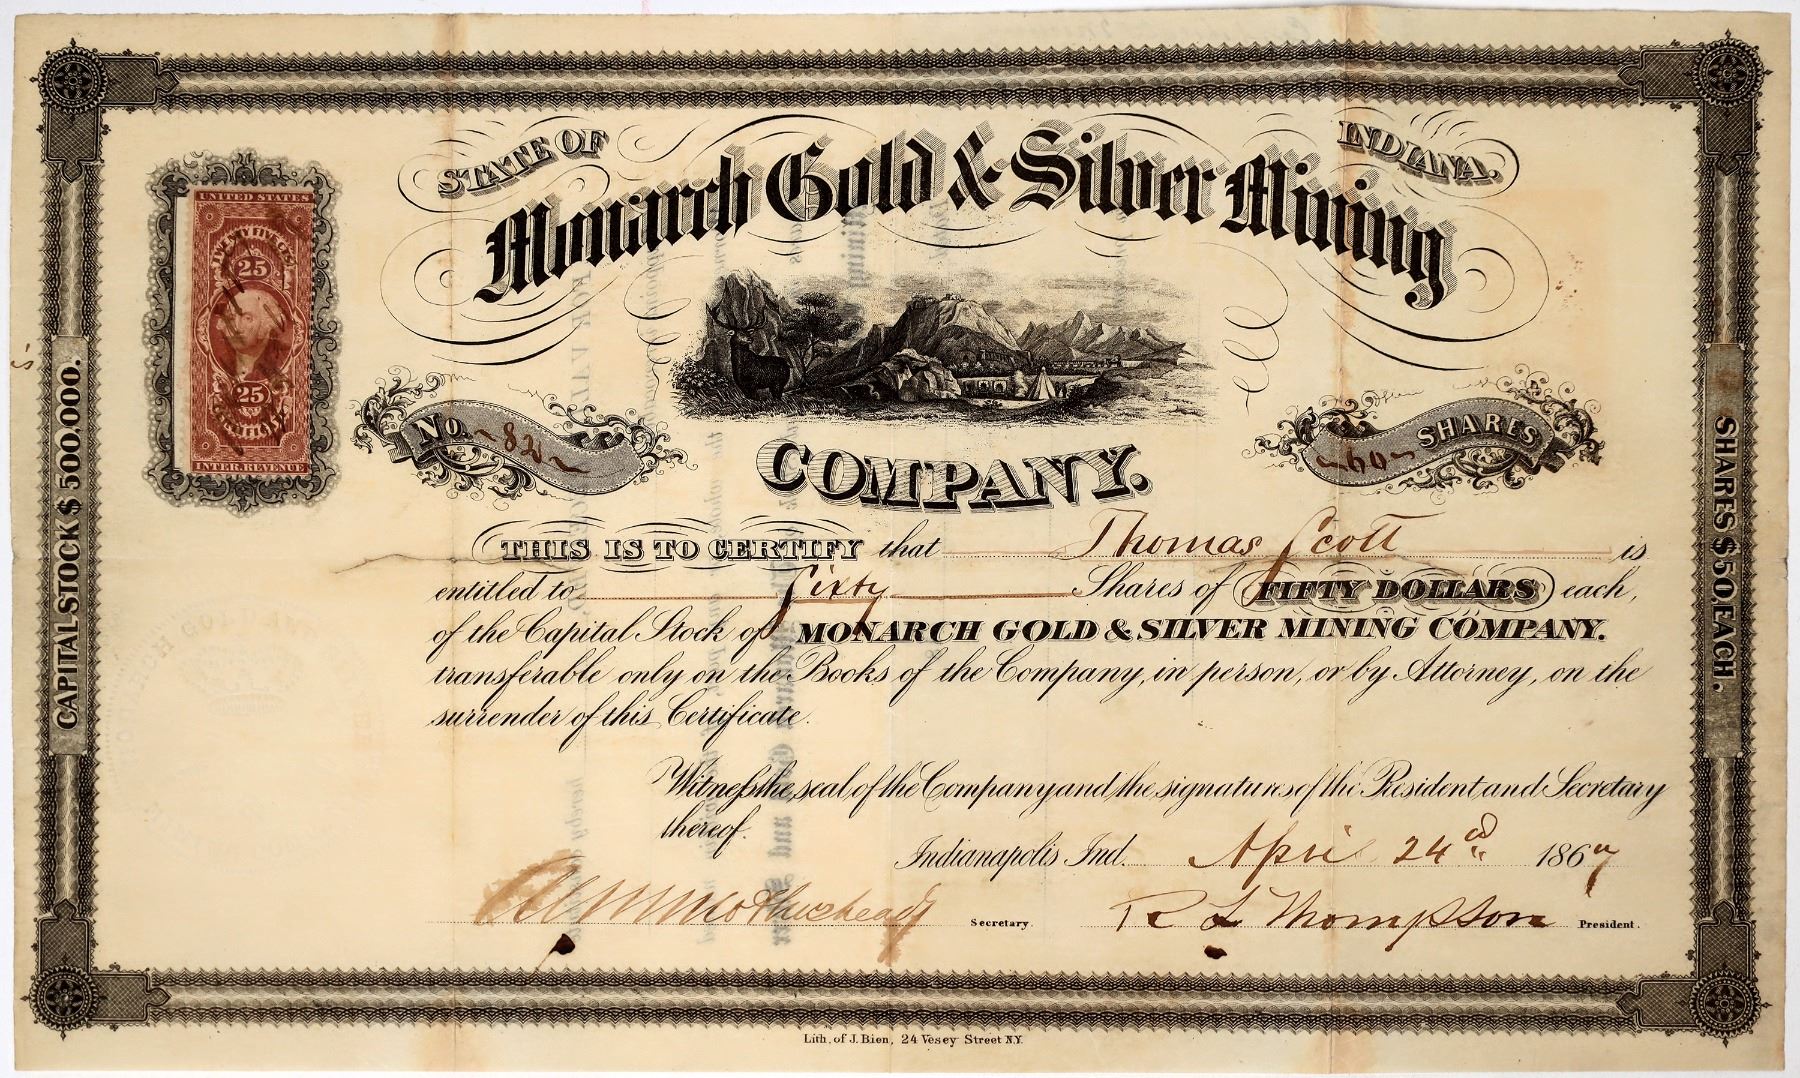 STATE OF INDIANA.
Monarch Gold & Silver Mining
COMPANY.
UNITED STATES
TWENTY FIVE CTS
25
25
CERTIFICATE
INTER. REVENUE
No. ~82~
~60~ SHARES
CAPITAL STOCK $ 500,000.
SHARES $50 EACH.
THIS IS TO CERTIFY that Thomas Scott is
entitled to Sixty Shares of FIFTY DOLLARS each,
of the Capital Stock of MONARCH GOLD & SILVER MINING COMPANY.
transferable only on the Books of the Company, in person, or by Attorney, on the
surrender of this Certificate.
Witness the seal of the Company and the signatures of the President and Secretary
thereof.
Indianapolis Ind. April 24th 1867
Secretary.
R L Thompson President.
Lith. of J. Bien, 24 Vesey Street N.Y.